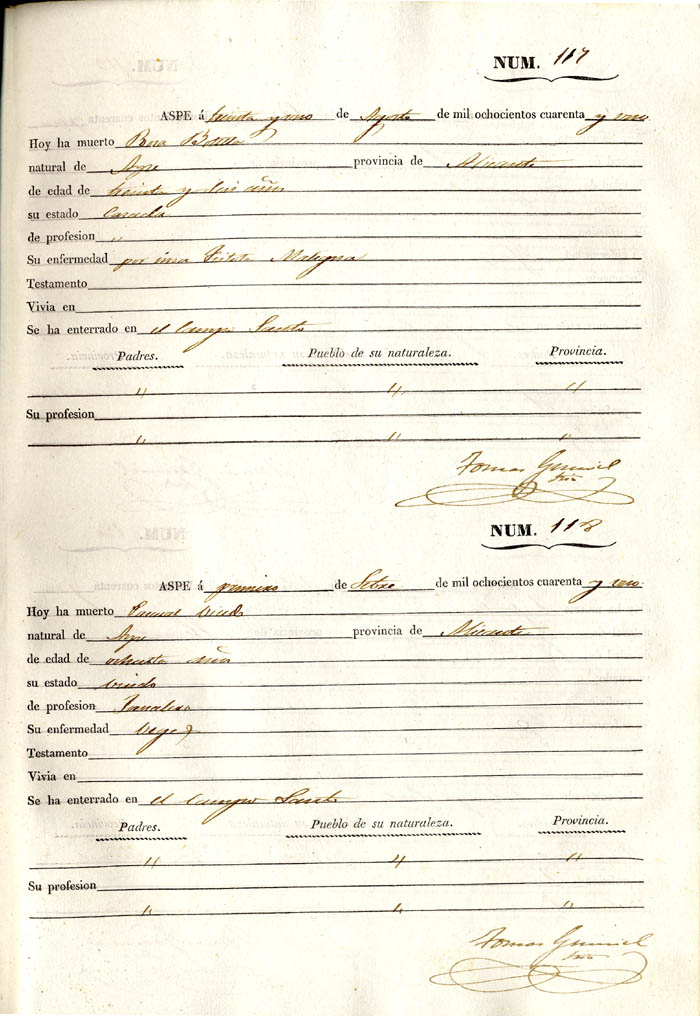 NUM. 117
ASPE á treinta y uno de Agosto de mil ochocientos cuarenta y uno.
Hoy ha muerto Rosa Botella
natural de Aspe provincia de Alicante
de edad de treinta y seis años
su estado Casada
de profesion "
Su enfermedad por una Maligna
Testamento
Vivia en
Se ha enterrado en el Campo Santo
Padres. Pueblo de su naturaleza. Provincia.
" " "
Su profesion
" " "
Tomas
NUM. 118
ASPE á primero de Setbre de mil ochocientos cuarenta y uno.
Hoy ha muerto
natural de Aspe provincia de Alicante
de edad de ochenta años
su estado viudo
de profesion Jornalero
Su enfermedad vegez
Testamento
Vivia en
Se ha enterrado en el Campo Santo
Padres. Pueblo de su naturaleza. Provincia.
" " "
Su profesion
" " "
Tomas